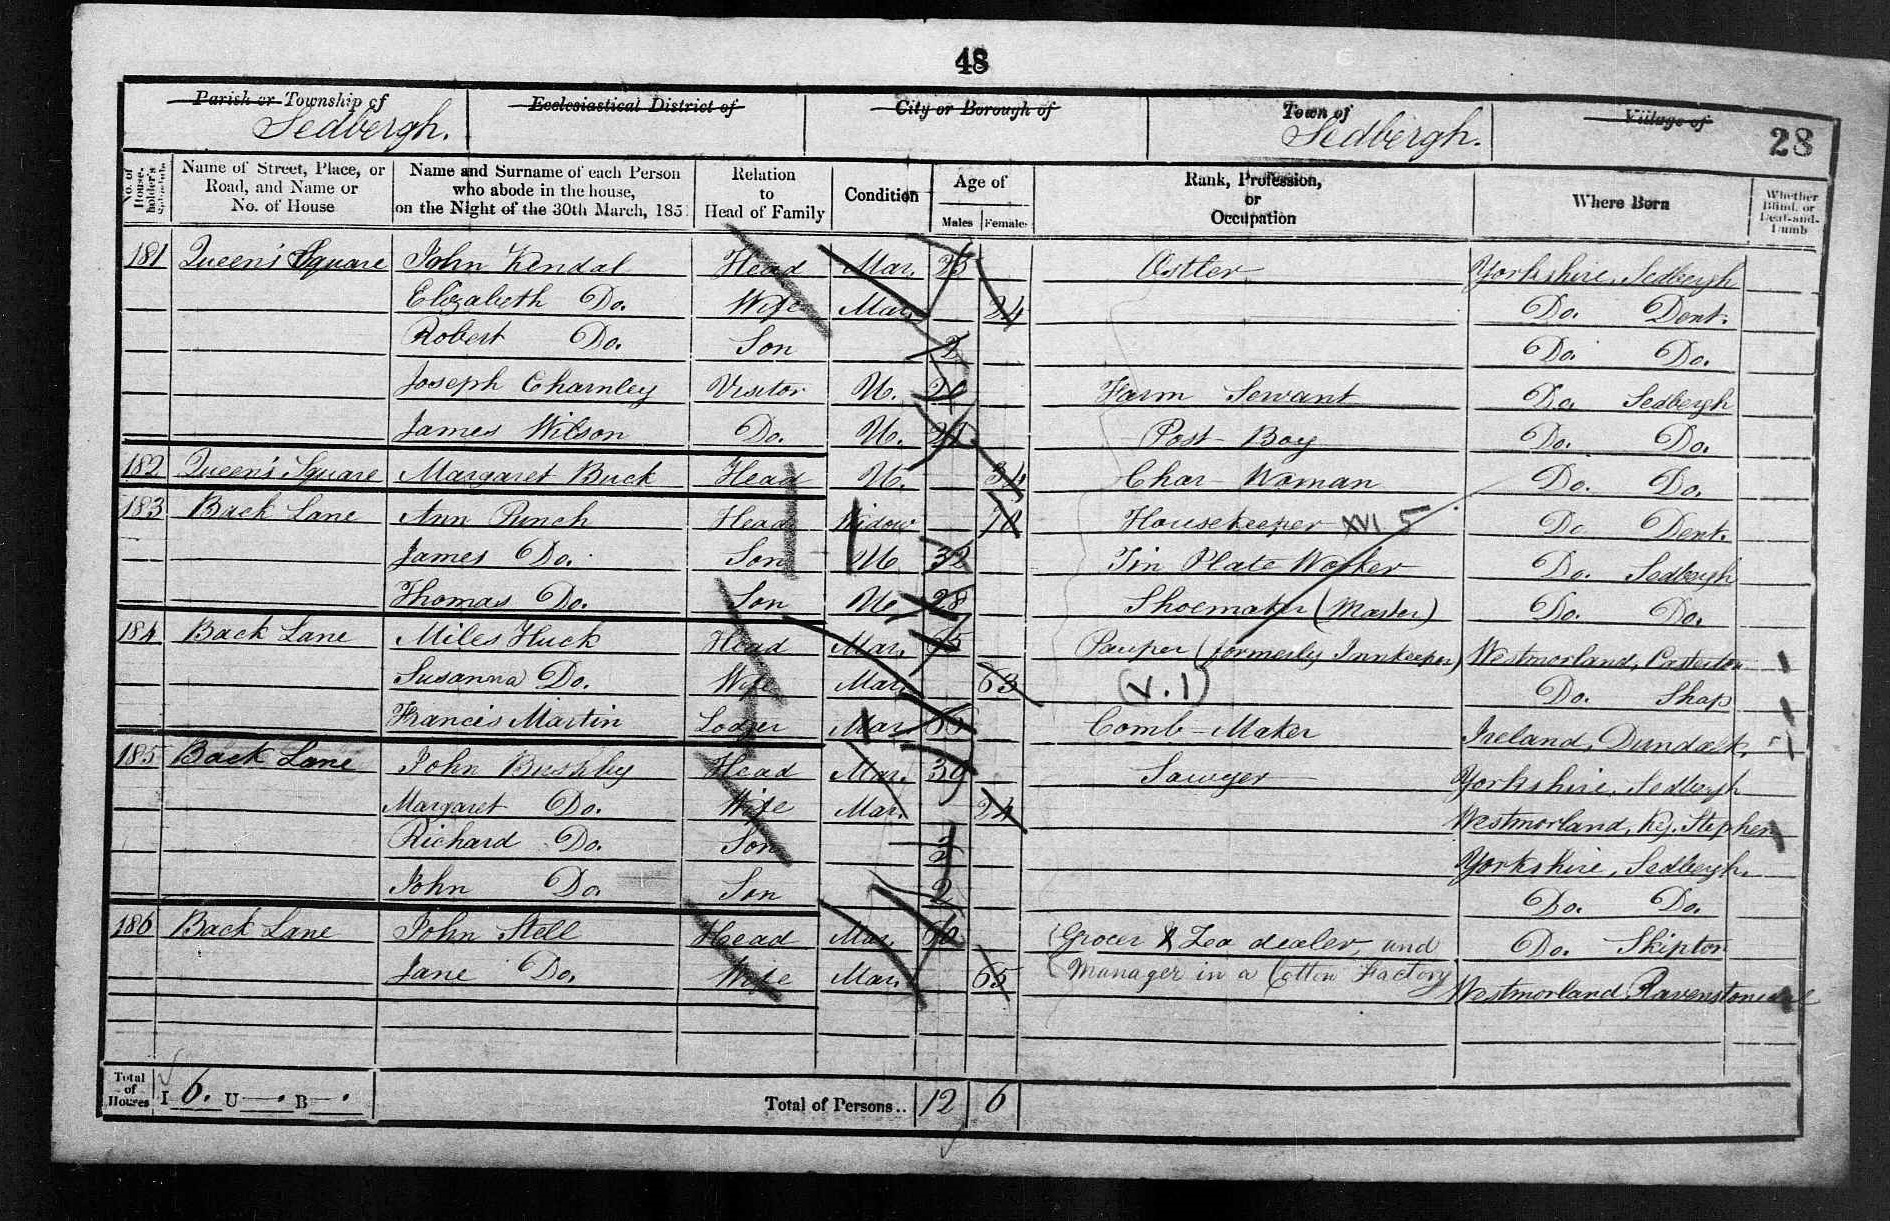 48
Parish or Township of Ecclesiastical District of City or Borough of Town of Village of
Sedbergh. Sedbergh. 28
No. of House-holder's Schedule Name of Street, Place, or Road, and Name or No. of House Name and Surname of each Person who abode in the house, on the Night of the 30th March, 185 Relation to Head of Family Condition Age of Males Females Rank, Profession, or Occupation Where Born Whether Blind, or Deaf-and-Dumb
181 Queen's Square John Kendal Head Mar. Ostler Yorkshire, Sedbergh
Elizabeth Do. Wife Mar. 24 Do. Dent.
Robert Do. Son 2 Do. Do.
Joseph Charnley Visitor U. 20 Farm Servant Do. Sedbergh
James Wilson Do. U. Post Boy Do. Do.
182 Queen's Square Margaret Buck Head U. 34 Char-Woman Do. Do.
183 Back Lane Ann Punch Head Widow 70 Housekeeper XVI 5 Do Dent.
James Do. Son U 32 Tin Plate Worker Do. Sedbergh
Thomas Do. Son U 28 Shoemaker (Master) Do. Do.
184 Back Lane Miles Huck Head Mar. Pauper (formerly Innkeeper) Westmorland, Casterton
Susanna Do. Wife Mar. 63 (V.1) Do. Shap
Francis Martin Lodger Mar. Comb-Maker Ireland, Dundalk,
185 Back Lane John Bushby Head Mar. 39 Sawyer Yorkshire, Sedbergh
Margaret Do. Wife Mar. 24 Westmorland, Ky. Stephen
Richard Do. Son Yorkshire, Sedbergh.
John Do. Son 2 Do. Do.
186 Back Lane John Stell Head Mar. Grocer & Tea dealer, and Do. Skipton
Jane Do. Wife Mar. 65 Manager in a Cotton Factory Westmorland, Ravenstonedale
Total of Houses I 6. U —. B —. Total of Persons.. 12 6